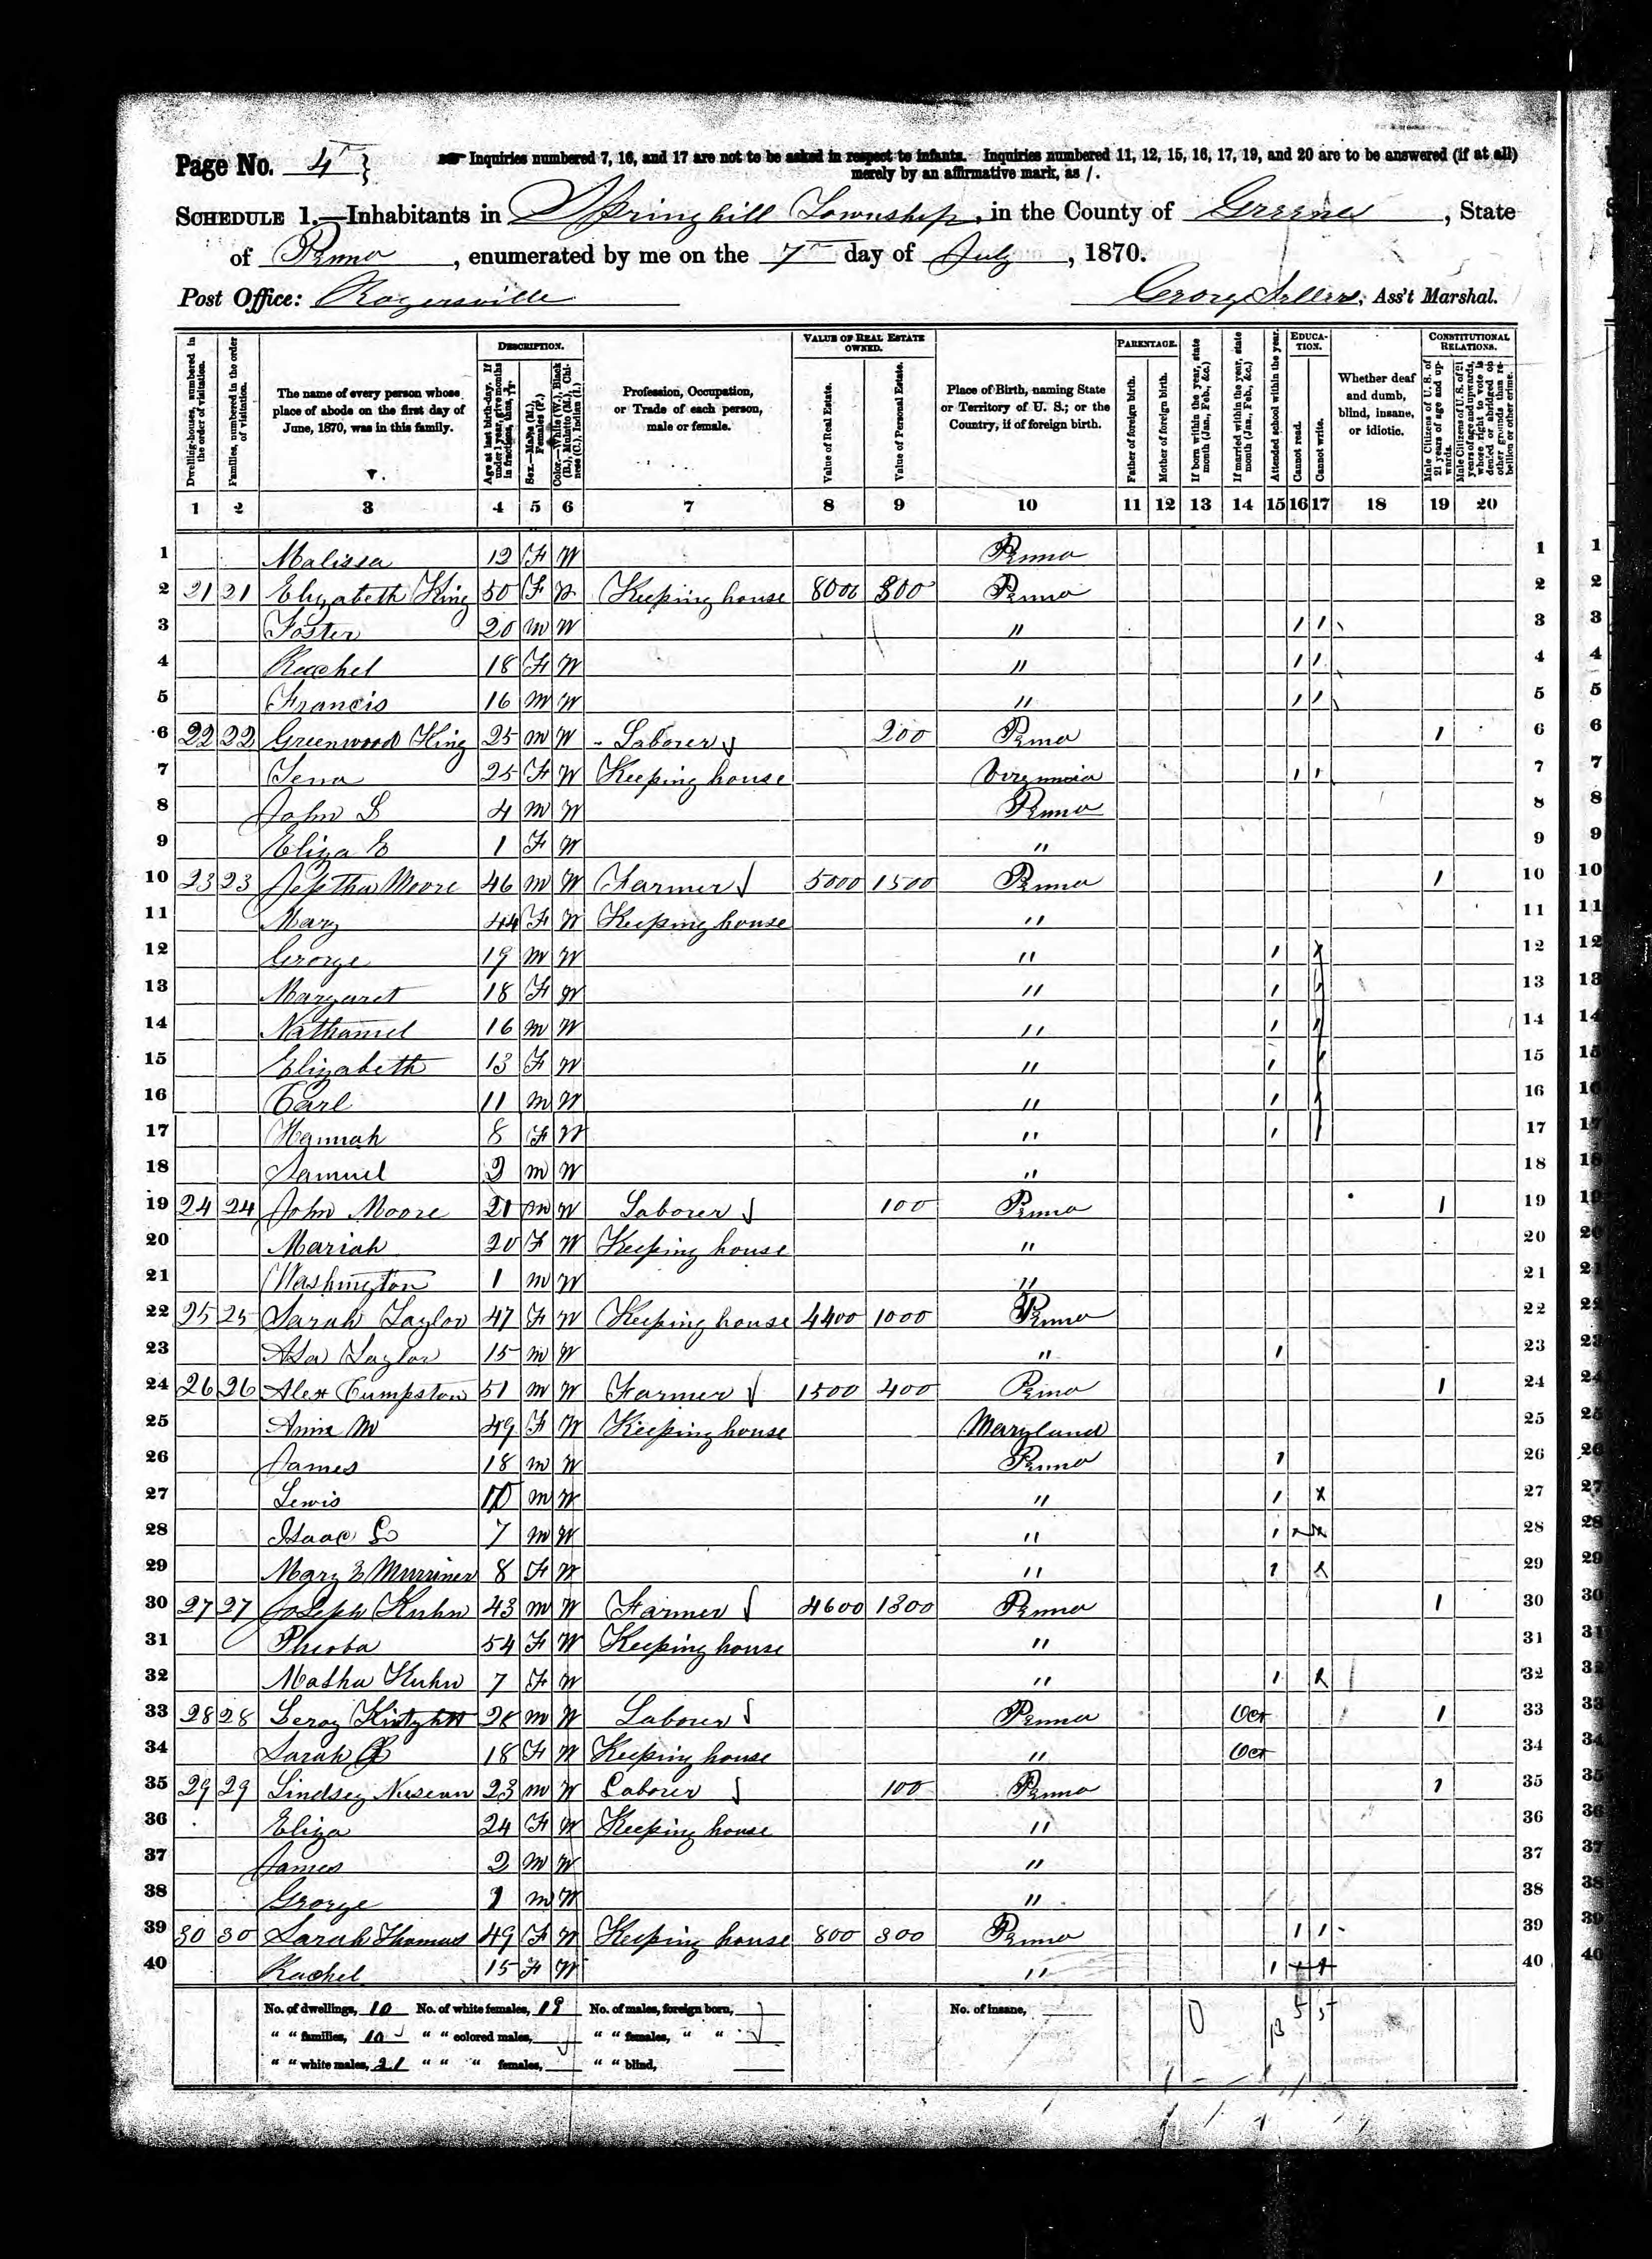 Page No. 4
Inquiries numbered 7, 16, and 17 are not to be asked in respect to infants. Inquiries numbered 11, 12, 15, 16, 17, 19, and 20 are to be answered (if at all)
merely by an affirmative mark, as /.
SCHEDULE 1.—Inhabitants in Springhill Township, in the County of Greene, State
of Penna, enumerated by me on the 7 day of July, 1870.
Post Office: Rogersville
Ass't Marshal.
Dwelling-houses, numbered in the order of visitation.
Families, numbered in the order of visitation.
The name of every person whose place of abode on the first day of June, 1870, was in this family.
DESCRIPTION.
Age at last birth-day. If under 1 year, give months in fractions, thus,
Sex.—Males (M.), Females (F.)
Color.—White (W.), Black (B.), Mulatto (M.), Chinese (C.), Indian (I.)
Profession, Occupation, or Trade of each person, male or female.
VALUE OF REAL ESTATE OWNED.
Value of Real Estate.
Value of Personal Estate.
Place of Birth, naming State or Territory of U. S.; or the Country, if of foreign birth.
PARENTAGE.
Father of foreign birth.
Mother of foreign birth.
If born within the year, state month (Jan. Feb., &c.)
If married within the year, state month (Jan. Feb., &c.)
Attended school within the year.
EDUCATION.
Cannot read.
Cannot write.
Whether deaf and dumb, blind, insane, or idiotic.
CONSTITUTIONAL RELATIONS.
Male Citizens of U. S. of 21 years of age and upwards.
Male Citizens of U. S. of 21 years of age and upwards, whose right to vote is denied or abridged on other grounds than rebellion or other crime.
1 2 3 4 5 6 7 8 9 10 11 12 13 14 15 16 17 18 19 20
1 Malissa 12 F W Penna 1
2 21 21 Elizabeth King 50 F W Keeping house 8000 800 Penna 2
3 Foster 20 M W " 1 1 3
4 Rachel 18 F W " 1 1 4
5 Francis 16 M W " 1 1 5
6 22 22 Greenwood King 25 M W Laborer 200 Penna 1 6
7 25 F W Keeping house 1 1 7
8 John 4 M W Penna 8
9 Eliza 1 F W " 9
10 23 23 Moore 46 M W Farmer 5000 1500 Penna 1 10
11 Mary 44 F W Keeping house " 11
12 George 19 M W " 1 12
13 Margaret 18 F W " 1 1 13
14 Nathaniel 16 M W " 1 1 14
15 Elizabeth 13 F W " 1 1 15
16 Carl 11 M W " 1 1 16
17 Hannah 8 F W " 1 1 17
18 Samuel 2 M W " 18
19 24 24 John Moore 21 M W Laborer 100 Penna 1 19
20 Mariah 20 F W Keeping house " 20
21 Washington 1 M W " 21
22 25 25 Sarah Taylor 47 F W Keeping house 4400 1000 Penna 22
23 Asa Taylor 15 M W " 1 23
24 26 26 Alex Cumpston 51 M W Farmer 1500 400 Penna 1 24
25 Anna M 49 F W Keeping house Maryland 25
26 James 18 M W Penna 1 26
27 Lewis 10 M W " 1 x 27
28 Isaac 7 M W " 1 x x 28
29 Mary E 8 F W " 1 x 29
30 27 27 Joseph Kuhn 43 M W Farmer 4600 1300 Penna 1 30
31 Pheoba 54 F W Keeping house " 31
32 Kuhn 7 F W " 1 x 32
33 28 28 Leroy M W Laborer Penna Oct 1 33
34 Sarah 18 F W Keeping house " Oct 34
35 29 29 Lindsey 23 M W Laborer 100 Penna 1 35
36 Eliza 24 F W Keeping house " 36
37 James 2 M W " 37
38 George 1 M W " 38
39 30 30 Sarah Thomas 49 F W Keeping house 800 300 Penna 1 1 39
40 Rachel 15 F W " 1 40
No. of dwellings, 10 No. of white females, 19 No. of males, foreign born, No. of insane,
" " families, 10 " " colored males, " " females, " "
" " white males, 21 " " " females, " " blind,